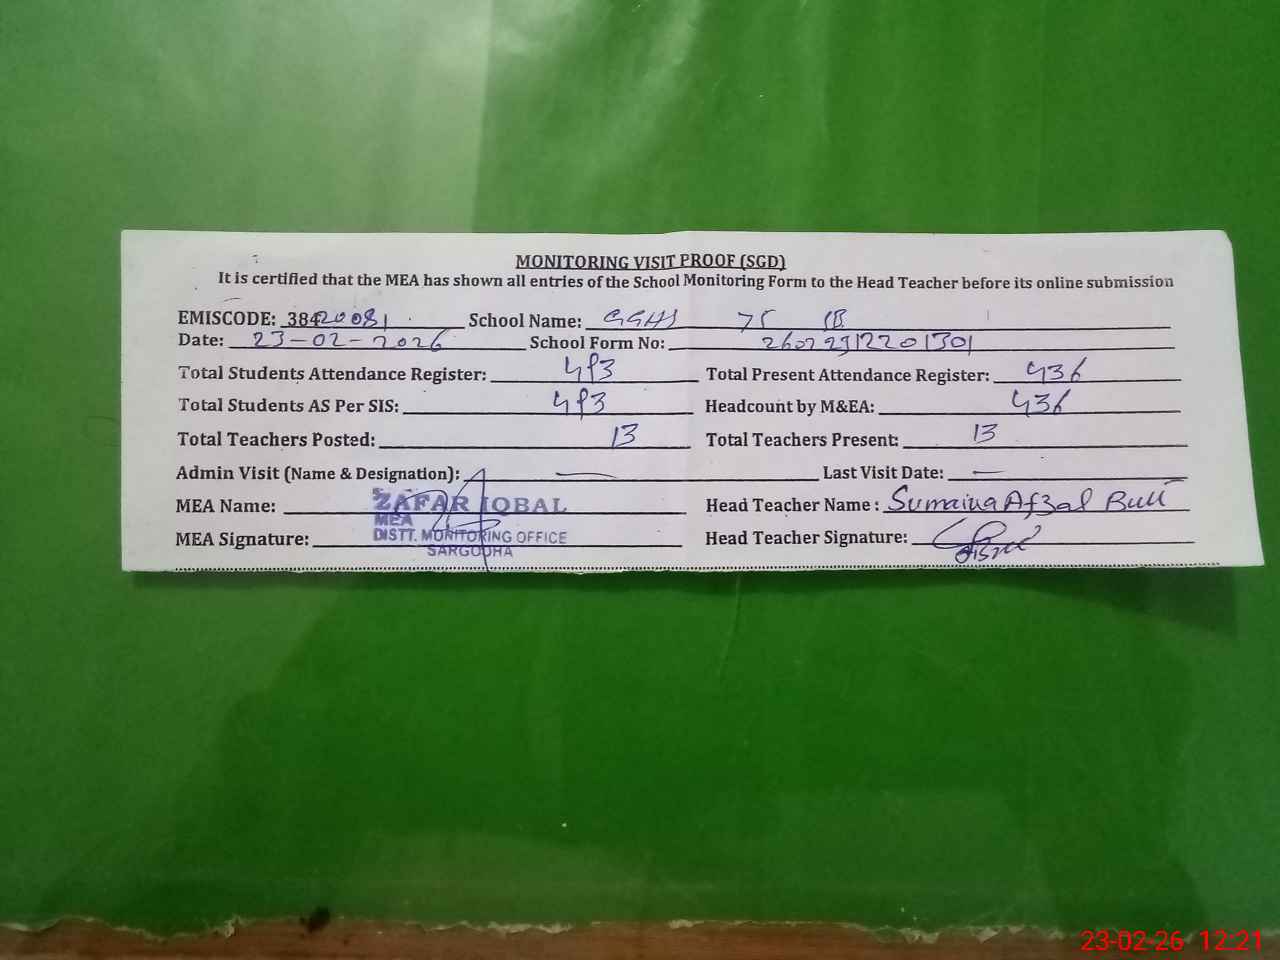 MONITORING VISIT PROOF (SGD)
It is certified that the MEA has shown all entries of the School Monitoring Form to the Head Teacher before its online submission
EMISCODE: 38420081 School Name: GGHS 75 SB
Date: 23-02-2026 School Form No: 26022312201301
Total Students Attendance Register: 493 Total Present Attendance Register: 436
Total Students AS Per SIS: 493 Headcount by M&EA: 436
Total Teachers Posted: 13 Total Teachers Present: 13
Admin Visit (Name & Designation): — Last Visit Date: —
MEA Name: ZAFAR IQBAL Head Teacher Name : Sumaira Afzal Butt
MEA
MEA Signature: DISTT. MONITORING OFFICE Head Teacher Signature:
SARGODHA
23-02-26 12:21